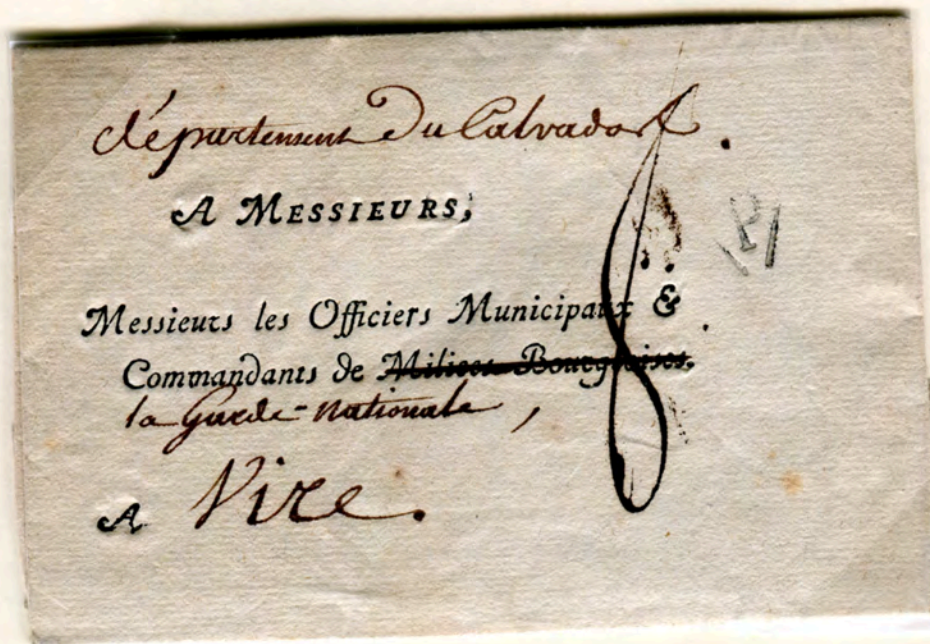 département du Calvados
A MESSIEURS,
Messieurs les Officiers Municipaux &
Commandants de Milices Bourgeoises.
la Garde-nationale,
A Vire.
8
P